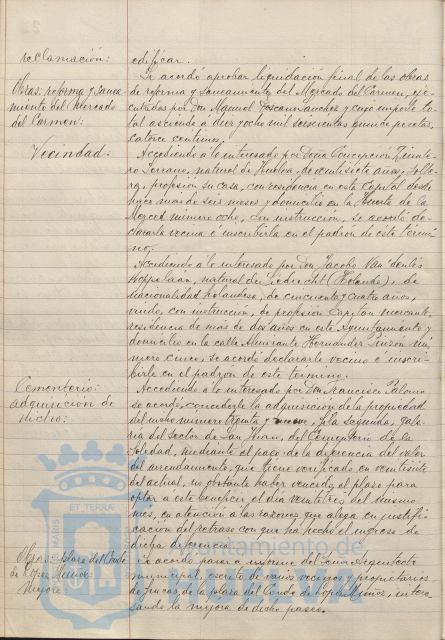 reclamación:
edificar.
Se acordó aprobar liquidación final de las obras
Obras: reforma y sanea-
de reforma y saneamiento del Mercado del Carmen, eje-
miento del Mercado
cutadas por Don Manuel Toscano Sanchez y cuyo importe to-
del Carmen:
tal asciende a diez y ocho mil seiscientas quince pesetas,
catorce centimos.
Vecindad:
Accediendo a lo interesado por Doña Concepción
Serrano, natural de Huelva, de veintisiete años, solte-
ra, profesión su casa, con residencia en esta Capital desde
hace mas de seis meses y domicilio en la Huerta de la
Merced número ocho, con instrucción, se acordó de-
clararla vecina é inscribirla en el padrón de este térmi-
no.
Accediendo a lo interesado por Don Jacobo Van
natural de (Holanda), de
nacionalidad holandesa, de cincuenta y cuatro años,
viudo, con instrucción, de profesión Capitan mercante,
residencia de mas de dos años en este Ayuntamiento y
domicilio en la calle Almirante Hernandez Pinzon nú-
mero cinco, se acordó declararle vecino é inscri-
birle en el padrón de este término.
Cementerio:
Accediendo a lo interesado por Don Francisco Palomo
adquisición de
se acordó concederle la adquisición de la propiedad
Nicho:
del nicho número treinta y nueve, fila segunda, gale-
ria del Sector de San Juan, del Cementerio de la
Soledad, mediante el pago de la diferencia del valor
del arrendamiento, que tiene verificado en veintisiete
del actual, no obstante haber vencido el plazo para
optar a este beneficio el dia veintitrés del mismo
mes, en atención a las razones que alega en justifi-
cación del retraso con que ha hecho el ingreso de
dicha diferencia.
Obras: plaza del Conde
Se acordó pase a informe del Señor Arquitecto
de Lopez Muñoz:
municipal, escrito de varios vecinos y propietarios
Mejora
de fincas, de la plaza del Conde de Lopez Muñoz, intere-
sando la mejora de dicho paseo.
PORTUS MARIS
ET TERRÆ
Ayuntamiento de
HUELVA